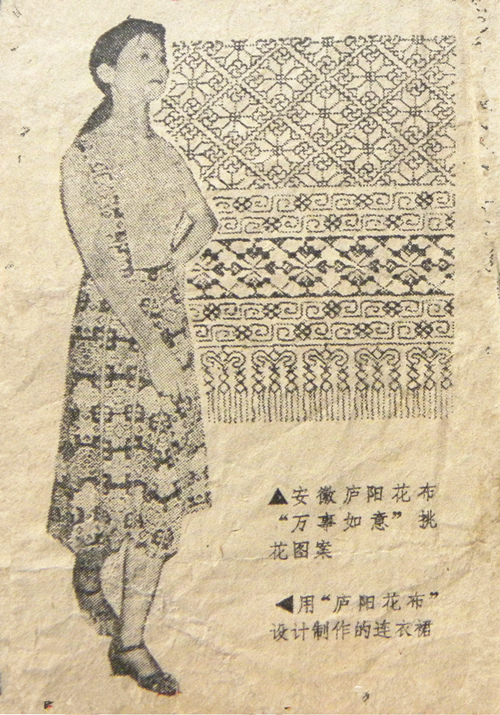 ▲安徽庐阳花布
“万事如意”挑
花图案
◀用“庐阳花布”
设计制作的连衣裙